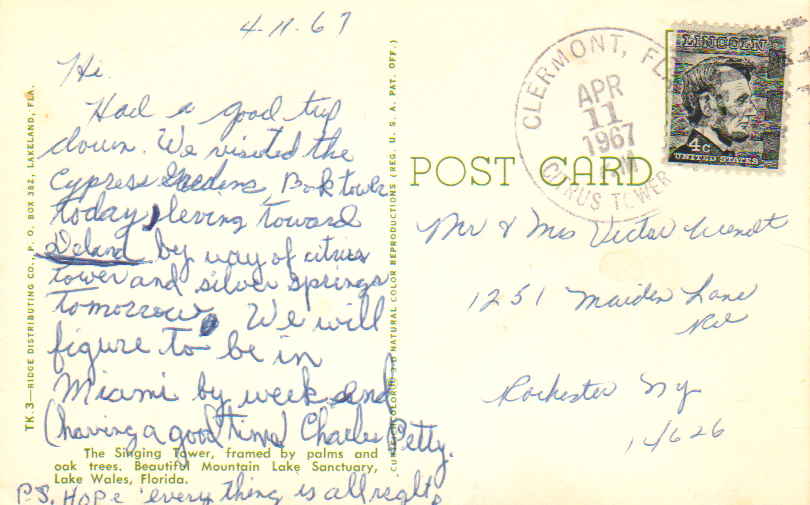 4-11-67
Hi.
Had a good trip
down. We visited the
Cypress Gardens, Bok tower
today, leving toward
Deland by way of citrus
tower and silver springs
tomorrow. We will
figure to be in
Miami by week end
(having a good time) Charles Petty.
P.S. Hope every thing is all right.
The Singing Tower, framed by palms and
oak trees. Beautiful Mountain Lake Sanctuary,
Lake Wales, Florida.
TK.3—RIDGE DISTRIBUTING CO., P. O. BOX 382, LAKELAND, FLA.
NATURAL COLOR REPRODUCTIONS (REG. U. S. A. PAT. OFF.)
POST CARD
CLERMONT, FLA
APR
11
1967
PM
CITRUS TOWER
LINCOLN
4c
UNITED STATES
Mr & Mrs Victor Wendt
1251 Maiden Lane
Rd
Rochester NY
14626